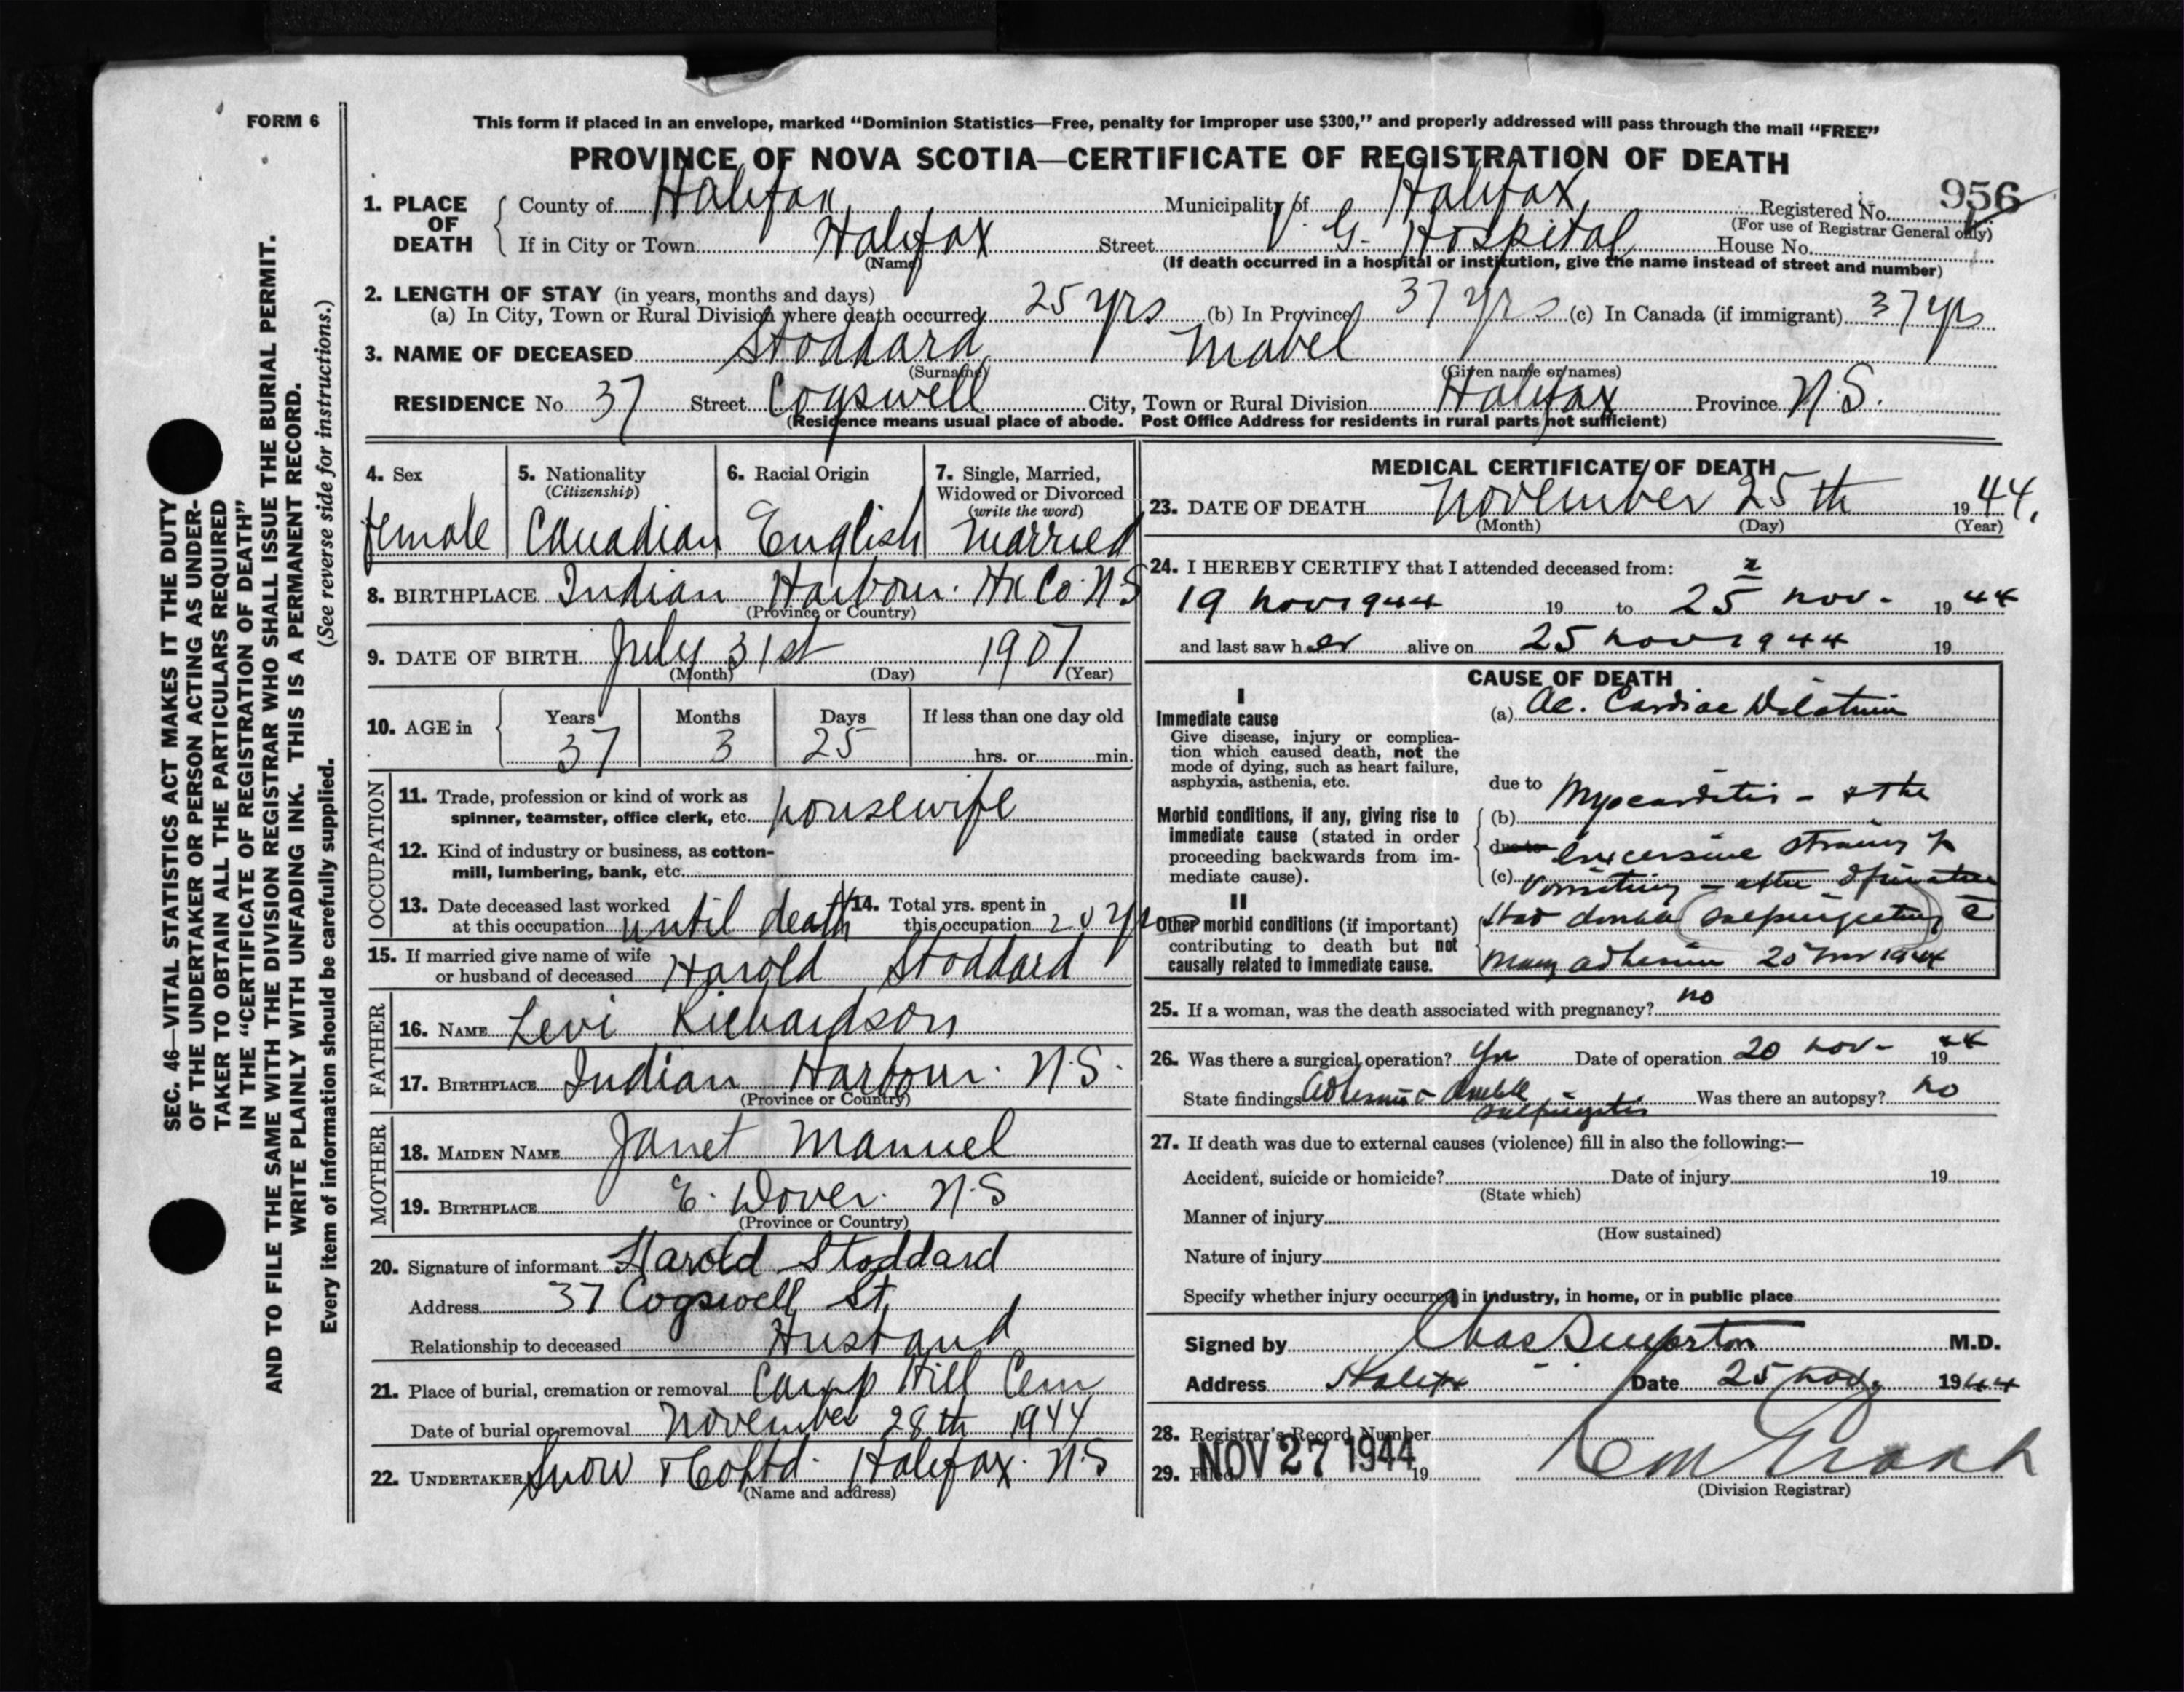 FORM 6
This form if placed in an envelope, marked “Dominion Statistics—Free, penalty for improper use $300,” and properly addressed will pass through the mail “FREE”
PROVINCE OF NOVA SCOTIA—CERTIFICATE OF REGISTRATION OF DEATH
956
1. PLACE OF DEATH
County of Halifax Municipality of Halifax Registered No.
(For use of Registrar General only)
If in City or Town Halifax Street V. G. Hospital House No.
(Name) (If death occurred in a hospital or institution, give the name instead of street and number)
2. LENGTH OF STAY (in years, months and days)
(a) In City, Town or Rural Division where death occurred 25 yrs (b) In Province 37 yrs (c) In Canada (if immigrant) 37 yrs
3. NAME OF DECEASED Stoddard Mabel
(Surname) (Given name or names)
RESIDENCE No. 37 Street Cogswell City, Town or Rural Division Halifax Province N.S.
(Residence means usual place of abode. Post Office Address for residents in rural parts not sufficient)
4. Sex
female
5. Nationality
(Citizenship)
Canadian
6. Racial Origin
English
7. Single, Married,
Widowed or Divorced
(write the word)
Married
8. BIRTHPLACE Indian Harbour. Hx Co. N.S
(Province or Country)
9. DATE OF BIRTH July 31st 1907
(Month) (Day) (Year)
10. AGE in
Years Months Days If less than one day old
37 3 25 hrs. or min.
OCCUPATION
11. Trade, profession or kind of work as
spinner, teamster, office clerk, etc. housewife
12. Kind of industry or business, as cotton-
mill, lumbering, bank, etc.
13. Date deceased last worked
at this occupation until death
14. Total yrs. spent in
this occupation 20 yrs
15. If married give name of wife
or husband of deceased Harold Stoddard
FATHER
16. NAME Levi Richardson
17. BIRTHPLACE Indian Harbour. N.S.
(Province or Country)
MOTHER
18. MAIDEN NAME Janet Manuel
19. BIRTHPLACE E. Dover. N.S
(Province or Country)
20. Signature of informant Harold Stoddard
Address 37 Cogswell St.
Relationship to deceased Husband
21. Place of burial, cremation or removal Camp Hill Cem
Date of burial or removal November 28th 1944
22. UNDERTAKER Snow & Co Ltd. Halifax. N.S
(Name and address)
MEDICAL CERTIFICATE OF DEATH
23. DATE OF DEATH November 25th 1944.
(Month) (Day) (Year)
24. I HEREBY CERTIFY that I attended deceased from:
19 Nov 1944 19 to 25 Nov - 1944
and last saw her alive on 25 Nov 1944 19
CAUSE OF DEATH
I
Immediate cause
Give disease, injury or complica-
tion which caused death, not the
mode of dying, such as heart failure,
asphyxia, asthenia, etc.
(a) Ac. Cardiac Dilatation
due to Myocarditis - & the
Morbid conditions, if any, giving rise to
immediate cause (stated in order
proceeding backwards from im-
mediate cause).
(b)
due to excessive straining
(c) vomiting - after operation
II
Other morbid conditions (if important)
contributing to death but not
causally related to immediate cause.
Had double salpingectomy c̄
many adhesions 20 Nov 1944
25. If a woman, was the death associated with pregnancy? no
26. Was there a surgical operation? Yes Date of operation 20 Nov - 1944
State findings Adhesions & double
salpingitis Was there an autopsy? no
27. If death was due to external causes (violence) fill in also the following:—
Accident, suicide or homicide? Date of injury 19
(State which)
Manner of injury
(How sustained)
Nature of injury
Specify whether injury occurred in industry, in home, or in public place
Signed by Chas M.D.
Address Halifax Date 25 Nov 1944
28. Registrar's Record Number
29. Filed NOV 27 1944 19
(Division Registrar)
SEC. 46—VITAL STATISTICS ACT MAKES IT THE DUTY
OF THE UNDERTAKER OR PERSON ACTING AS UNDER-
TAKER TO OBTAIN ALL THE PARTICULARS REQUIRED
IN THE “CERTIFICATE OF REGISTRATION OF DEATH”
AND TO FILE THE SAME WITH THE DIVISION REGISTRAR WHO SHALL ISSUE THE BURIAL PERMIT.
WRITE PLAINLY WITH UNFADING INK. THIS IS A PERMANENT RECORD.
Every item of information should be carefully supplied. (See reverse side for instructions.)